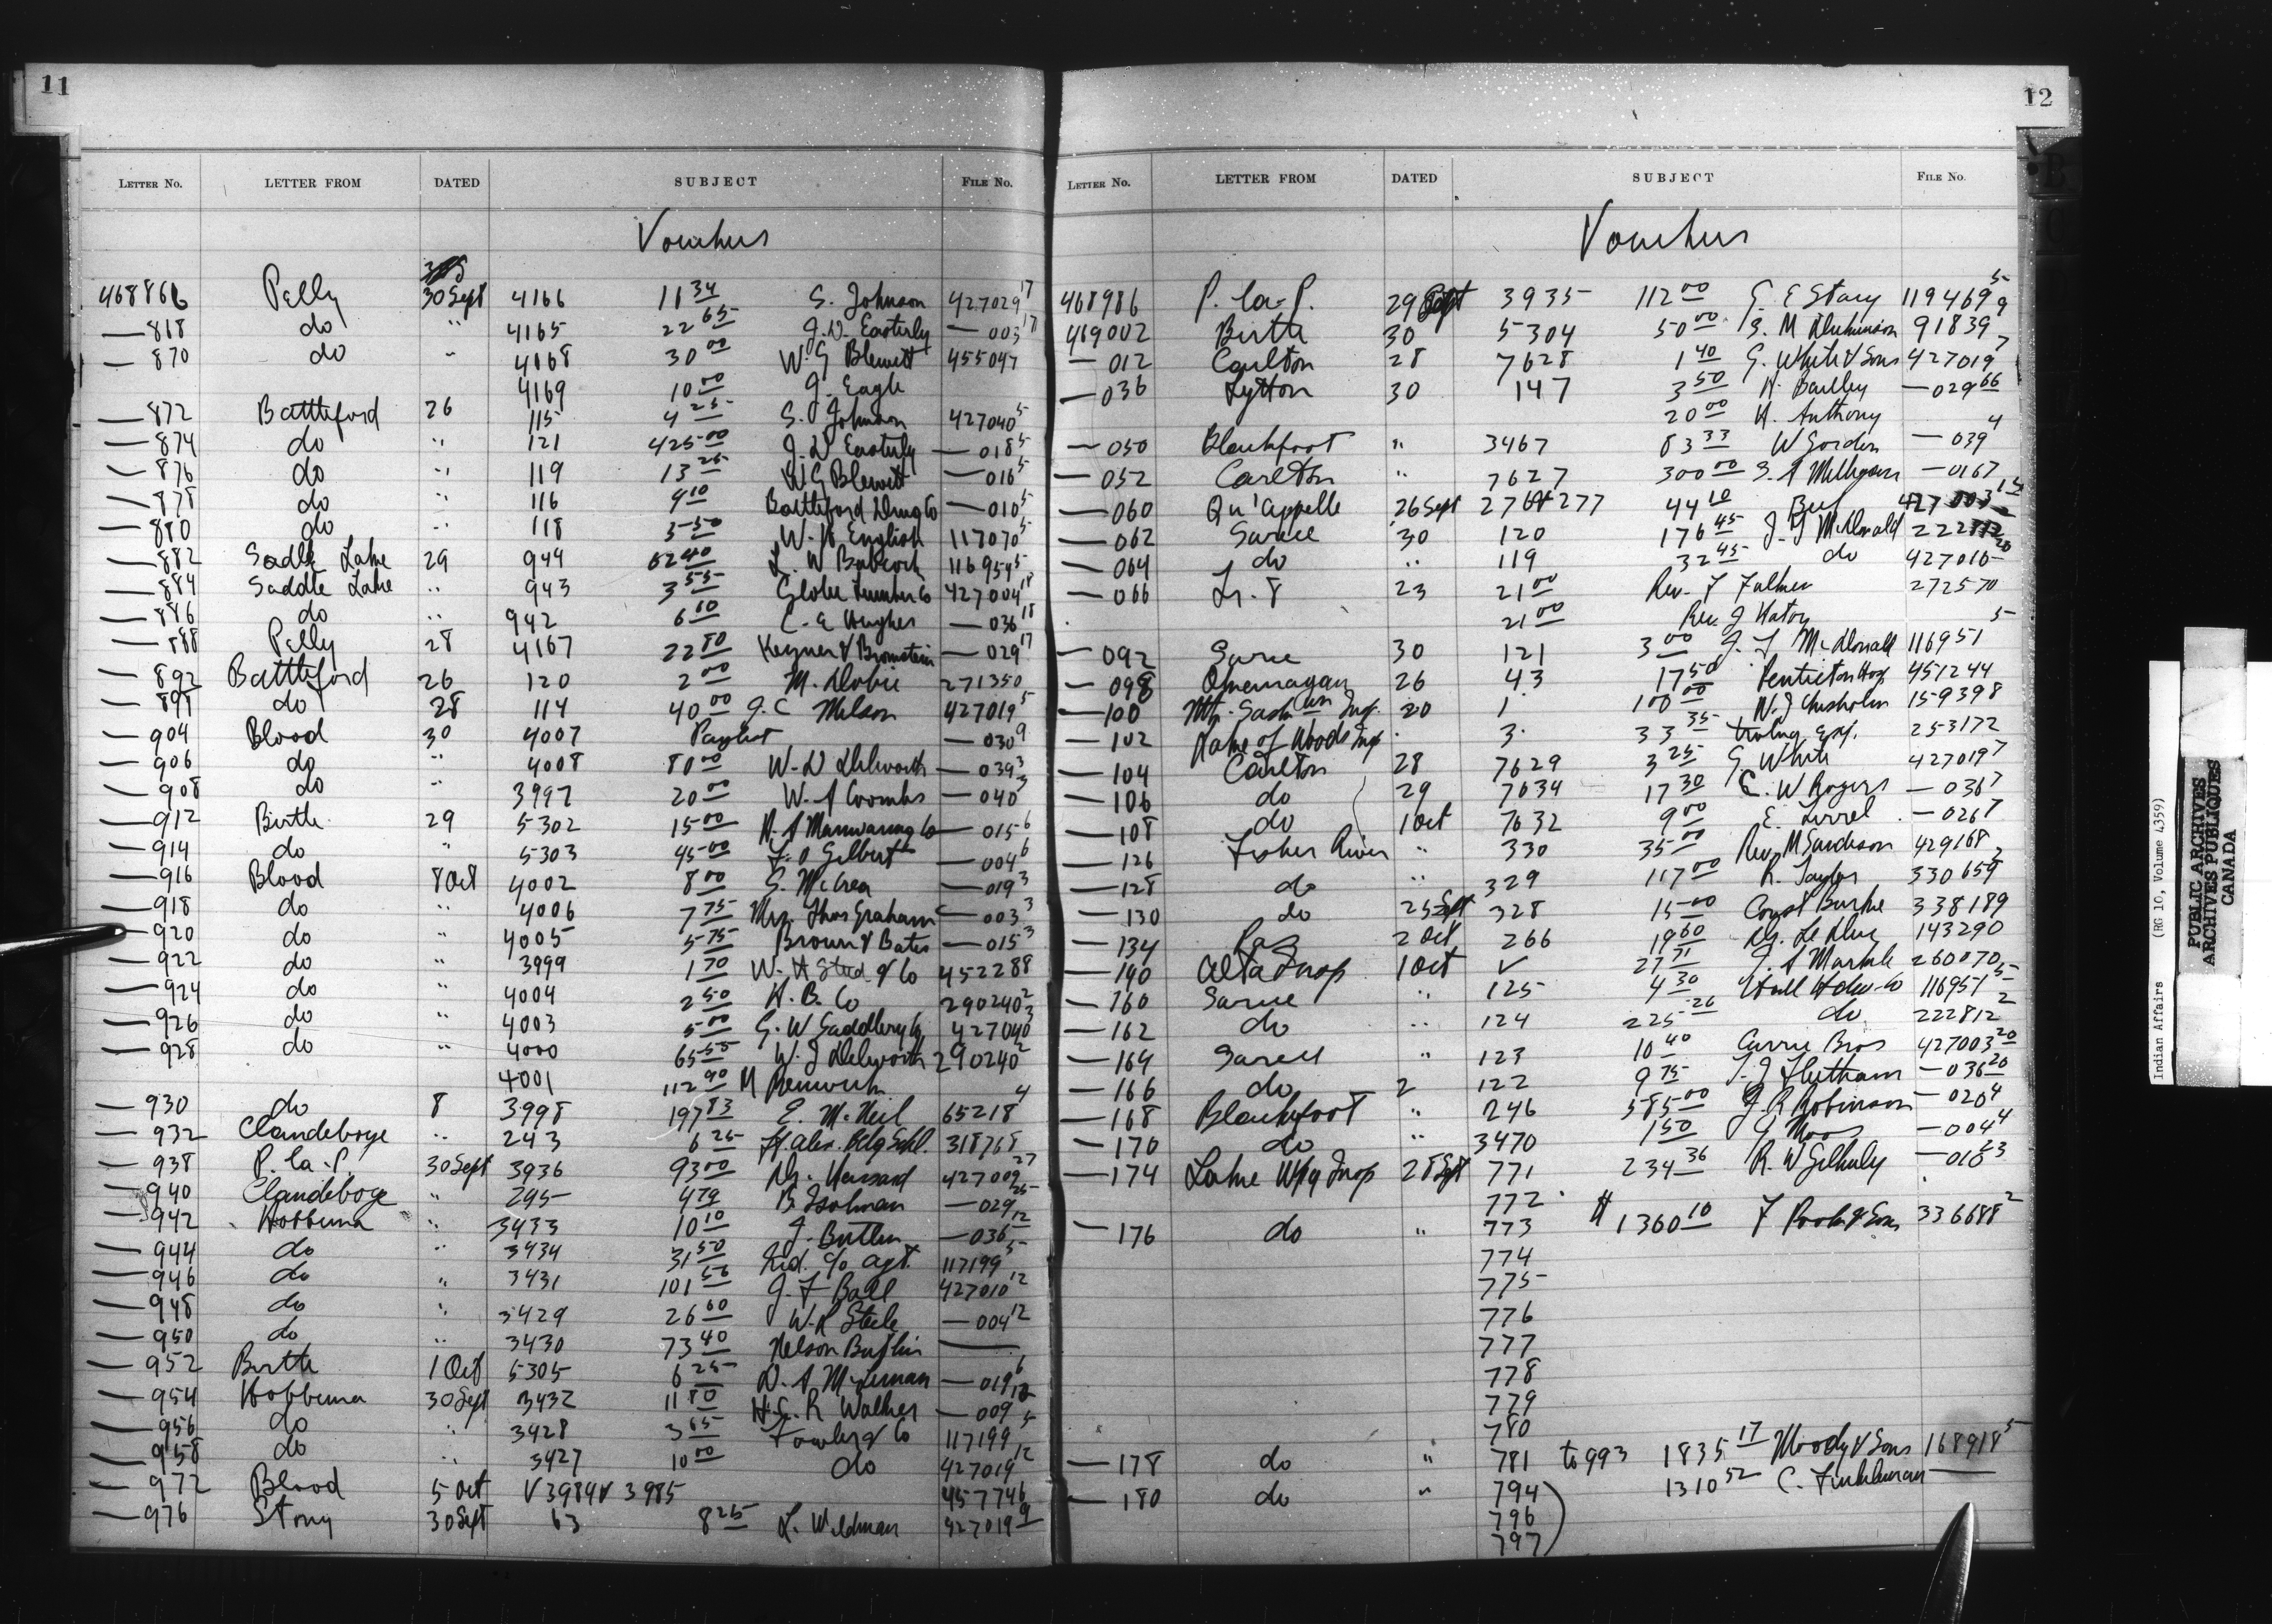 11
LETTER No. LETTER FROM DATED SUBJECT FILE No.
Vouchers
468866 Pelly 30 Sept 4166 11 34 S. Johnson 427029 17
— 818 do " 4165 22 65 J.D. Easterly — 003 17
— 870 do " 4168 30 00 W. G Blewett 455047
4169 10 00 J. Eagle
— 872 Battleford 26 115 4 25 S. Johnson 427040 5
— 874 do " 121 425 00 J. D Easterly — 018 5
— 876 do " 119 13 25 W G Blewett — 016 5
— 878 do " 116 4 10 Battleford Drug Co — 010 5
— 880 do " 118 3 50 W. H. English 117070 5
— 882 Sadle Lake 29 944 62 40 L. W Babcock 116954 5
— 884 Saddle Lake " 943 3 55 Globe Lumber Co 427004 18
— 886 do " 942 6 10 C. E Hughes — 036 18
— 888 Pelly 28 4167 22 80 Keyner & Bronstein — 029 17
— 892 Battleford 26 120 2 00 M. Dobie 271350
— 898 do 28 114 40 00 J. C Nelson 427019 5
— 904 Blood 30 4007 Paylist — 030 9
— 906 do " 4008 80 00 W. D Dilworth — 039 3
— 908 do " 3997 20 00 W. A Coombs — 040 3
— 912 Birtle 29 5302 15 00 H. A Manwaring Co — 015 6
— 914 do " 5303 45 00 F. O Gilbert — 004 6
— 916 Blood 8 Oct 4002 8 00 G. McCrea — 019 3
— 918 do " 4006 7 75 Mrs. Thos Graham — 003 3
— 920 do " 4005 5 75 Brown & Bates — 015 3
— 922 do " 3999 1 70 W. H Stead & Co 452288
— 924 do " 4004 2 50 H. B. Co 290240 2
— 926 do " 4003 5 00 G. W Saddlery Co 427040 3
— 928 do " 4000 65 55 W. J Dilworth 290240 2
4001 112 90 M Renwick
— 930 do 8 3998 197 83 E. McNeil 65218 4
— 932 Clandeboye " 243 6 25 Ft. Alex. Bdg Schl. 318768
— 938 P. la. P. 30 Sept 3936 93 00 Dr. Hassard 427009 27
— 940 Clandeboye " 245 4 79 B. Isolman — 029 25
— 942 Hobbema " 3433 10 10 J. Butler — 036 12
— 944 do " 3434 31 50 Ind. c/o Agt. 117199 5
— 946 do " 3431 101 56 J. F Ball 427010 12
— 948 do " 3429 26 60 W. R Steele — 004 12
— 950 do " 3430 73 40 Nelson ———
— 952 Birtle 1 Oct 5305 6 25 D. A McLennan — 019 6
— 954 Hobbema 30 Sept 3432 11 80 H. C. R Walker — 009 12
— 956 do " 3428 3 65 Fowler & Co 117199 5
— 958 do " 3427 10 00 do 427019 12
— 972 Blood 5 Oct V 3984 & 3985 457746
— 976 Stony 30 Sept 63 8 25 L. Wildman 427019 9
12
LETTER No. LETTER FROM DATED SUBJECT FILE No.
Vouchers
468986 P. la. P. 29 Sept 3935 112 00 G. E Stacy 119469 5
469002 Birtle 30 5304 50 00 S. M Dickinson 91839 9
— 012 Carlton 28 7628 1 40 G. White & Sons 427019 7
— 036 Lytton 30 147 3 50 H. Bailley — 029 66
20 00 H. Anthony
— 050 Blackfoot " 3467 83 33 W Gordon — 039 4
— 052 Carlton " 7627 300 00 S. A Milligan — 016 7
— 060 Qu'Appelle 26 Sept 276 & 277 44 10 427003 14
— 062 Sarcee 30 120 176 45 J. J McDonald 222812
— 064 do " 119 32 45 do 427016 20
— 066 Tr. 8 23 21 00 Rev. F 272570
21 00 Rev. J
— 092 Sarcee 30 121 3 00 J. J McDonald 116951 5
— 098 Okanagan 26 43 17 50 Penticton Hosp 451244
— 100 Nth. Saskwan Insp. 20 1 100 00 W. J Chisholm 159398
— 102 Lake of Woods Insp 3 33 35 Trvlng exp. 253172
— 104 Carlton 28 7629 3 25 G White 427019 7
— 106 do 29 7634 17 30 C. W Rogers — 036 7
— 108 do 1 Oct 7632 9 00 E. — 026 7
— 126 Fisher River " 330 35 00 Rev. M Sanderson 429168
— 128 do " 329 117 00 R. Taylor 330659 2
— 130 do 25 Sept 328 15 00 Const Burke 338189
— 134 Pas 2 Oct 266 19 60 Dr. Le 143290
— 140 Alta Insp 1 Oct ✓ 27 71 J. A Markle 260070
— 160 Sarcee " 125 4 30 Hull Hdw. Co 116951 5
— 162 do " 124 225 26 do 222812 2
— 164 Sarcee " 123 10 40 Currie Bros 427003 20
— 166 do 2 122 9 75 T. J Fleetham — 036 20
— 168 Blackfoot " 246 585 00 J. R Robinson — 020 4
— 170 do " 3470 1 50 J Moos — 004 4
— 174 Lake Wpg Insp 28 Sept 771 234 36 R. W Gilhuly — 010 23
772
— 176 do " 773 1360 10 F Poole & Son 336688 2
774
775
776
777
778
779
780
— 178 do " 781 to 993 1835 17 Moody & Sons 168918 5
— 180 do " 794 1310 52 C. Finkleman ———
796
797
Indian Affairs (RG 10, Volume 4359)
PUBLIC ARCHIVES
ARCHIVES PUBLIQUES
CANADA